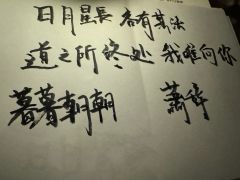 日月星辰 各有其法
道之所终处 我唯向你
暮暮朝朝 萧